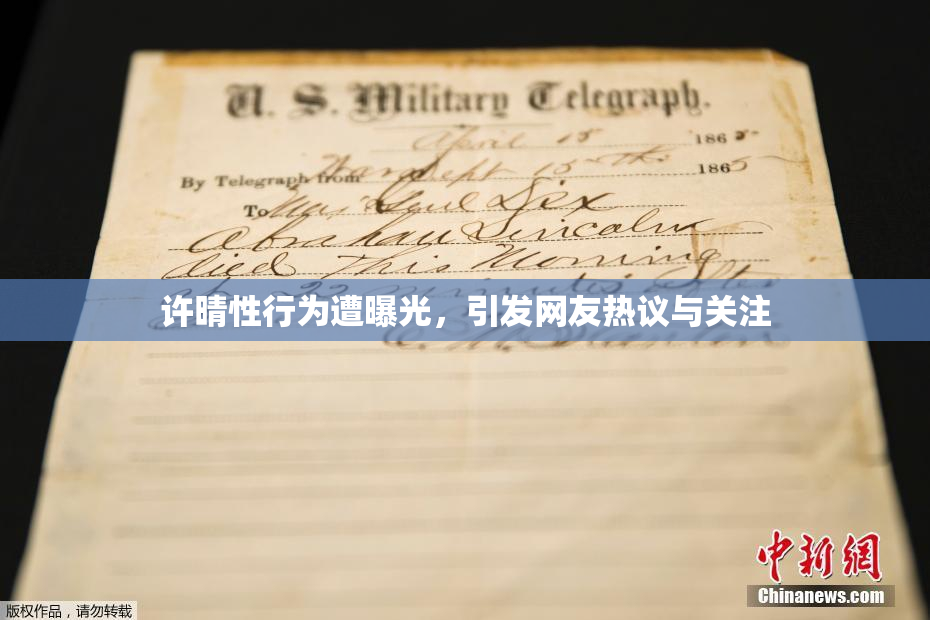 U. S. Military Telegraph.
April 15 1865
By Telegraph from War Dept 15th 1865
To Maj Genl Dix
Abraham Lincoln
died This Morning
at 22 minutes after
许晴性行为遭曝光，引发网友热议与关注
E. M. Stanton
中新网
Chinanews.com
版权作品，请勿转载